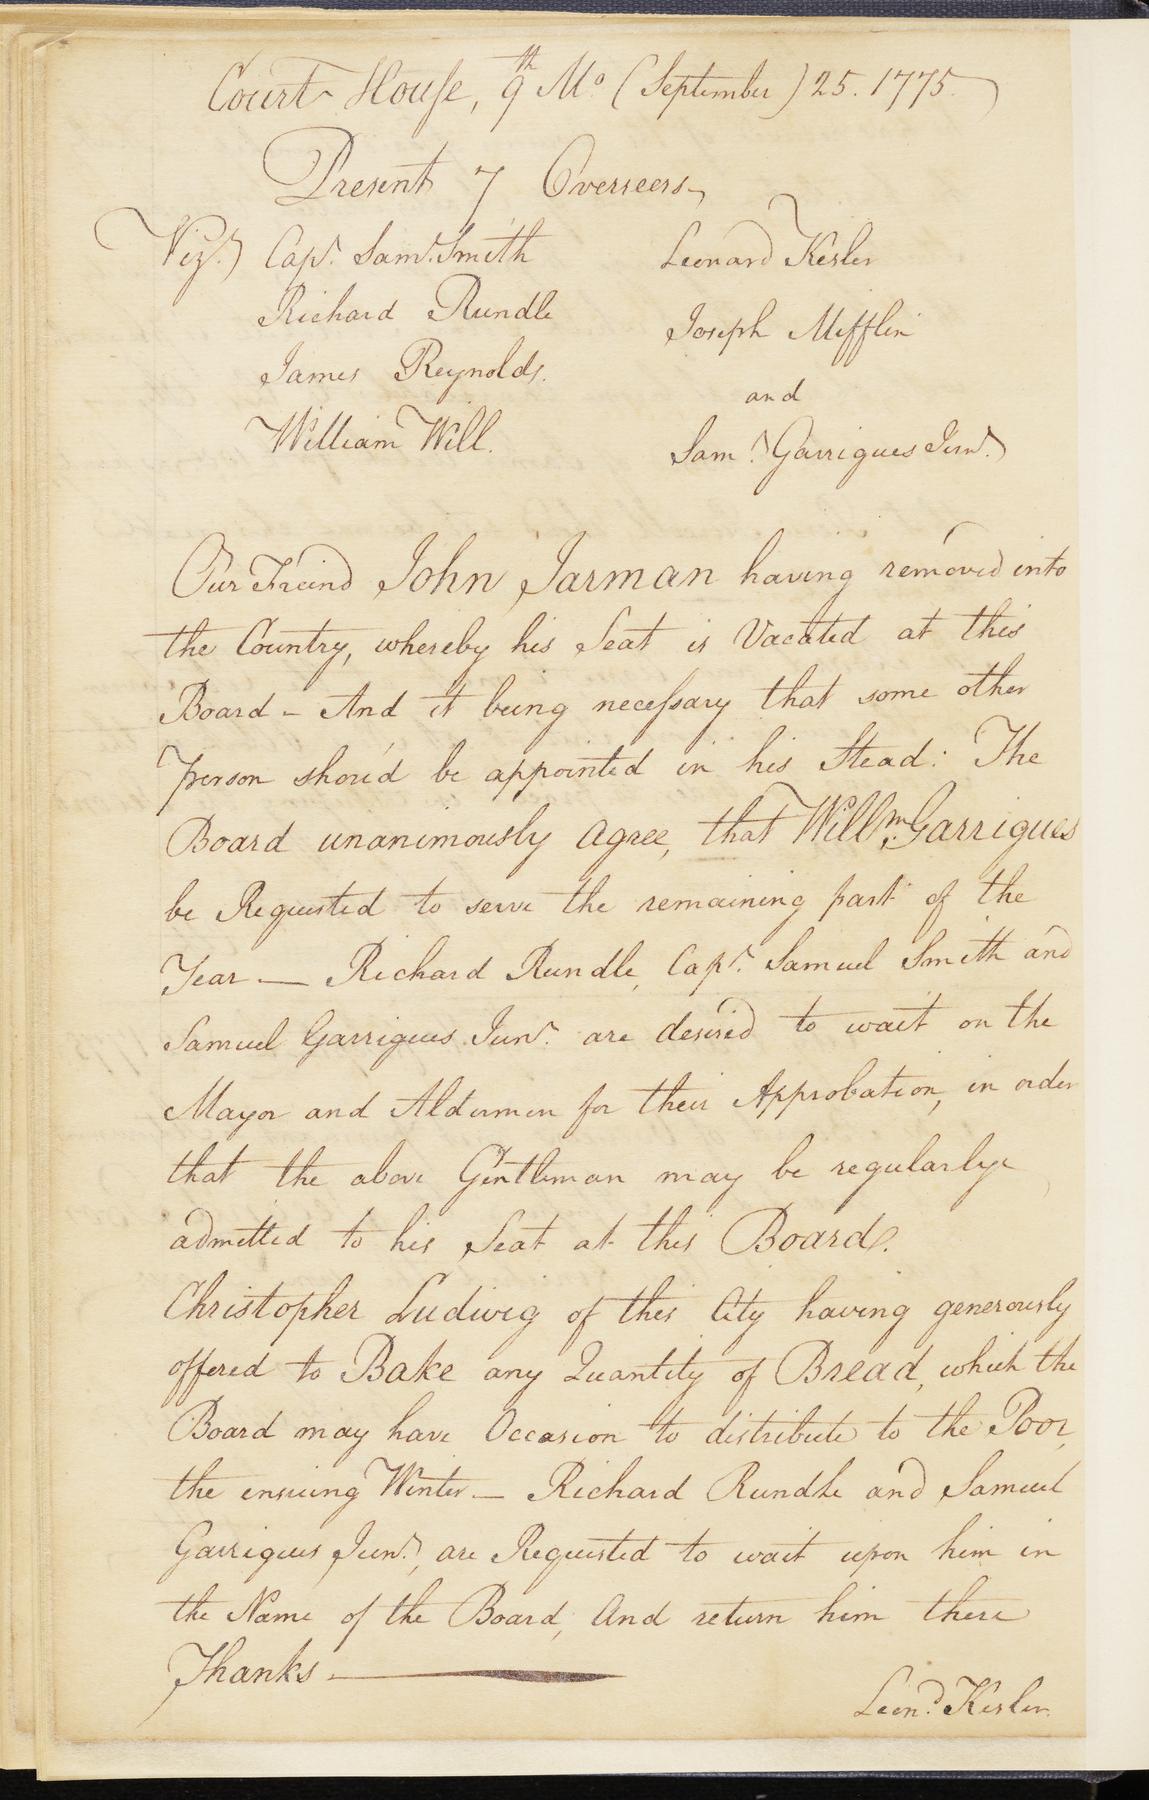 Court House, 9th Mo (September) 25. 1775.
Present 7 Overseers,
Vizt. Capt. Saml. Smith
Richard Rundle
James Reynolds.
William Will.
Leonard Kesler
Joseph Mifflin
and
Saml. Garrigues Junr.
Our Freind John Jarman having removed into
the Country, whereby his Seat is Vacated at this
Board - And it being necessary that some other
person shou'd be appointed in his Stead: The
Board unanimously Agree, that Willm. Garrigues
be Requested to serve the remaining part of the
Year — Richard Rundle, Capt. Samuel Smith and
Samuel Garrigues Junr. are desired to wait on the
Mayor and Aldermen for their Approbation, in order
that the above Gentleman may be regularly
admitted to his Seat at this Board.
Christopher Ludwig of this City having generously
offered to Bake any Quantity of Bread, which the
Board may have Occasion to distribute to the Poor,
the ensuing Winter — Richard Rundle and Samuel
Garrigues Junr., are Requested to wait upon him in
the Name of the Board, And return him there
Thanks —
Leond. Kesler.